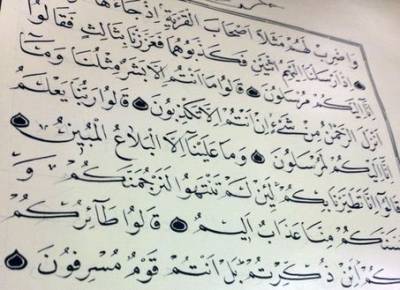 وَاضْرِبْ لَهُمْ مَثَلًا اَصْحَابَ الْقَرْيَةِ اِذْ جَآءَهَا
اِذْ اَرْسَلْنَآ اِلَيْهِمُ اثْنَيْنِ فَكَذَّبُوهُمَا فَعَزَّزْنَا بِثَالِثٍ فَقَالُوٓا
اِنَّآ اِلَيْكُمْ مُرْسَلُونَ قَالُوا مَآ اَنْتُمْ اِلَّا بَشَرٌ مِثْلُنَا وَمَآ
اَنْزَلَ الرَّحْمٰنُ مِنْ شَيْءٍ اِنْ اَنْتُمْ اِلَّا تَكْذِبُونَ قَالُوا رَبُّنَا يَعْلَمُ
اِنَّآ اِلَيْكُمْ لَمُرْسَلُونَ وَمَا عَلَيْنَآ اِلَّا الْبَلَاغُ الْمُبِينُ
قَالُوٓا اِنَّا تَطَيَّرْنَا بِكُمْ لَئِنْ لَمْ تَنْتَهُوا لَنَرْجُمَنَّكُمْ وَ
مِنَّا عَذَابٌ اَلِيمٌ قَالُوا طَآئِرُكُمْ
اَئِنْ ذُكِّرْتُمْ بَلْ اَنْتُمْ قَوْمٌ مُسْرِفُونَ